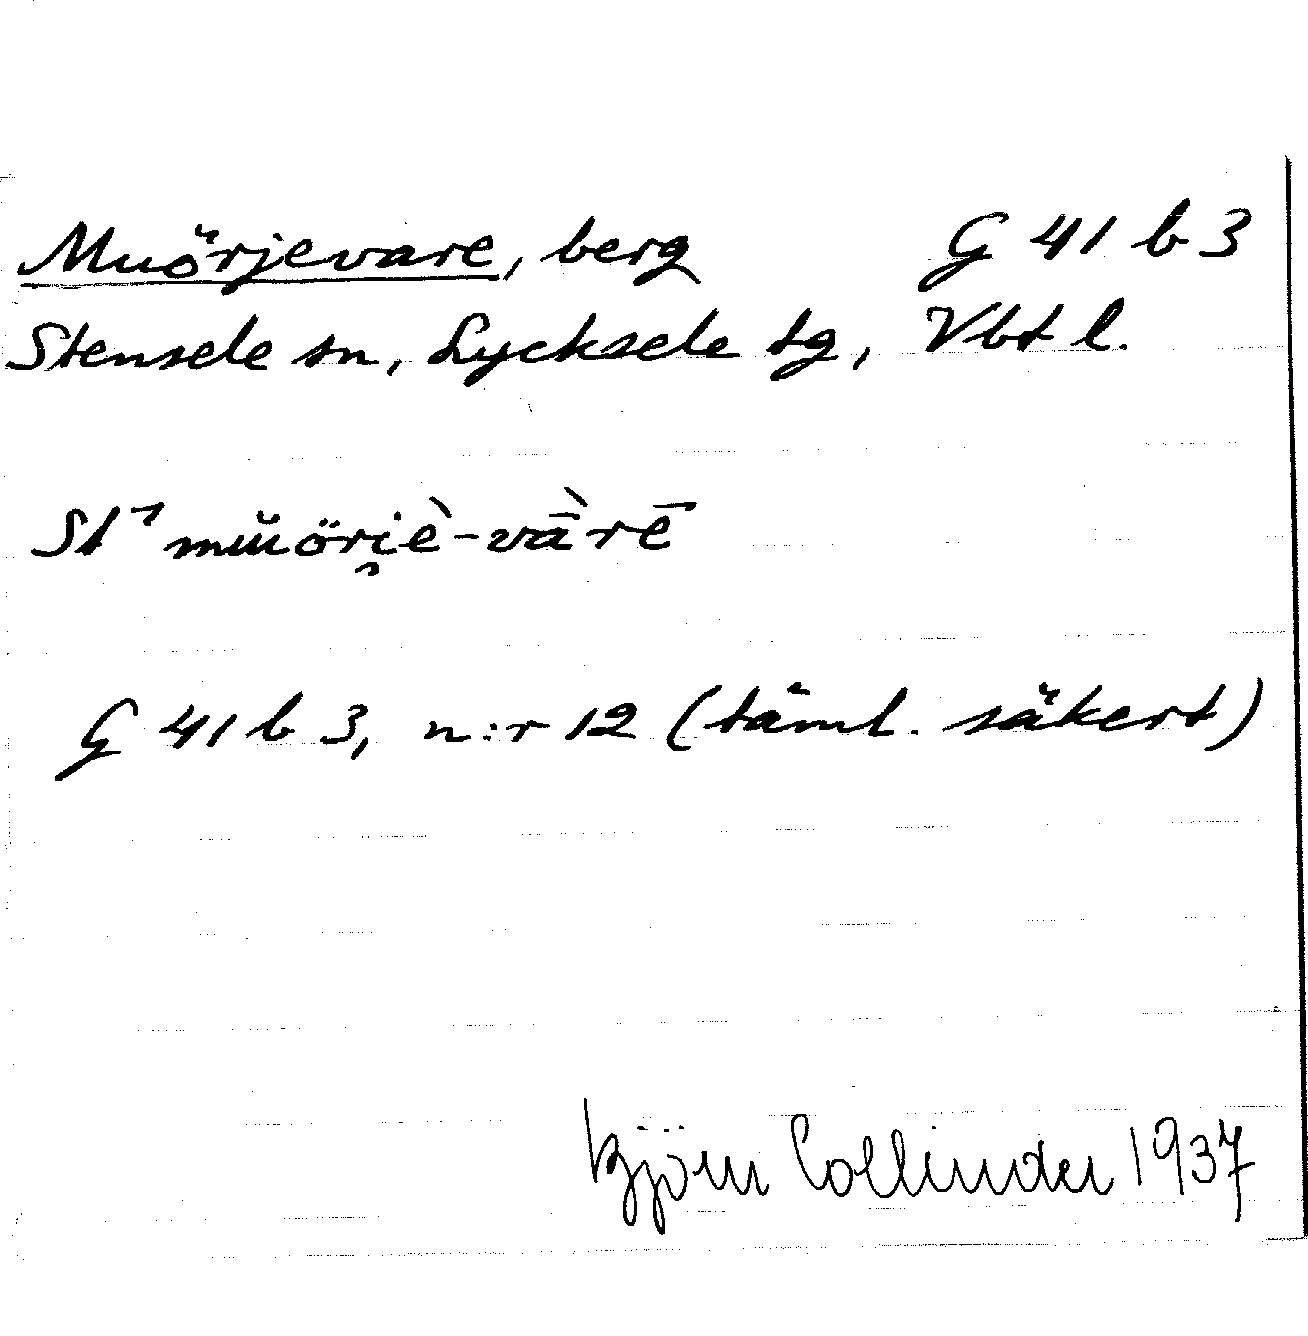 Muörjevare, berg G 41 b 3
Stensele sn, Lycksele tg, Vbt l.
St ⁊ mŭöri̯è̯-vā̀rē
G 41 b 3, n:r 12 (täml. säkert)
Björn Collinder 1937